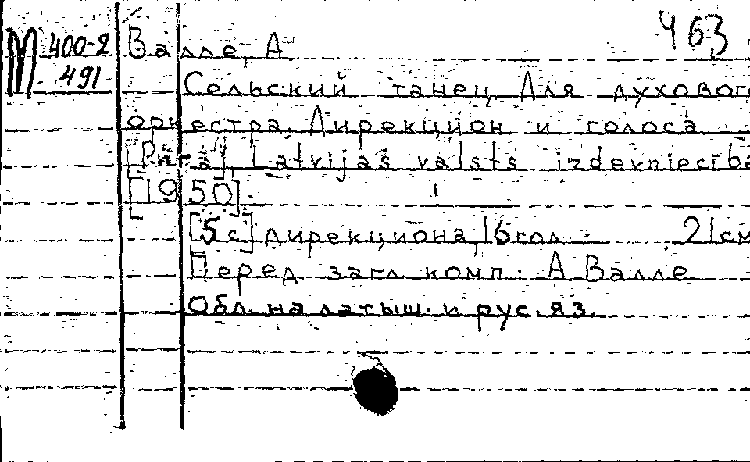 463
М 400-2
491
Валле, А
Сельский танец. Для духового
оркестра. Дирекцион и голоса
[Rīgā], Latvijas valsts izdevniecība
[1950].
[5 с] дирекциона, 16 гол. 21 см
Перед загл. комп.: А. Валле
Обл. на латыш. и рус. яз.